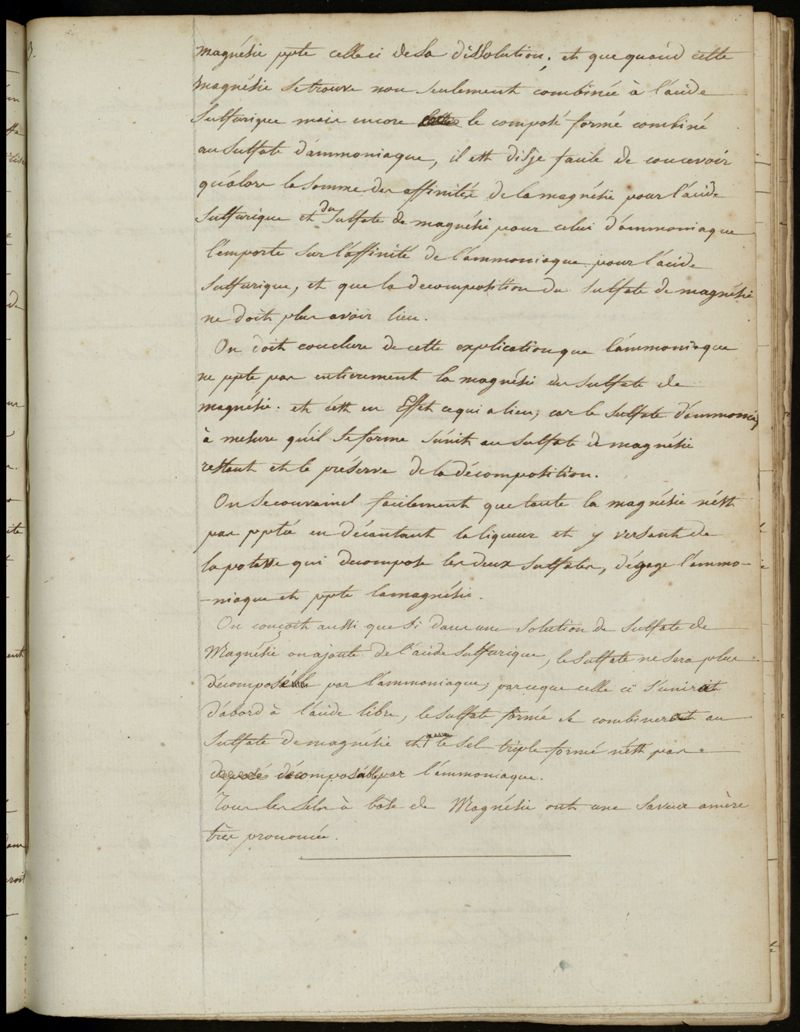 magnésie ppte celle ci de sa dissolution; et que quand cette
magnésie se trouve non seulement combinée à l'acide
Sulfurique mais encore le composé formé combiné
au Sulfate d'ammoniaque, il est disje facile de concevoir
qu'alors la somme des affinités de la magnésie pour l'acide
Sulfurique et du Sulfate de magnésie pour celui d'ammoniaque
l'emporte sur l'affinité de l'ammoniaque pour l'acide
Sulfurique, et que la decomposition du Sulfate de magnésie
ne doit plus avoir lieu.
On doit conclure de cette explication que l'ammoniaque
ne ppte pas entierement la magnésie du Sulfate de
magnésie. et c'est en Effet ce qui a lieu; car le Sulfate d'ammoniaq
à mesure qu'il se forme s'unit au Sulfate de magnésie
restant et le préserve de la décomposition.
On se convainct facilement que toute la magnésie n'est
pas pptée en décantant la liqueur et y versant de
la potasse qui decompose les deux Sulfates, dégage l'ammo-
-niaque et ppte la magnésie.
On conçoit aussi que si dans une Solution de Sulfate de
Magnésie on ajoute de l'acide Sulfurique, le Sulfate ne sera plus
décomposable par l'ammoniaque; parceque celle ci s'unirait
d'abord à l'acide libre, le sulfate formée se combinerait au
Sulfate de magnésie et le sel triple formé n'est pas
décomposable par l'ammoniaque.
Tous les sels à base de Magnésie ont une Saveur amère
très prononcée.